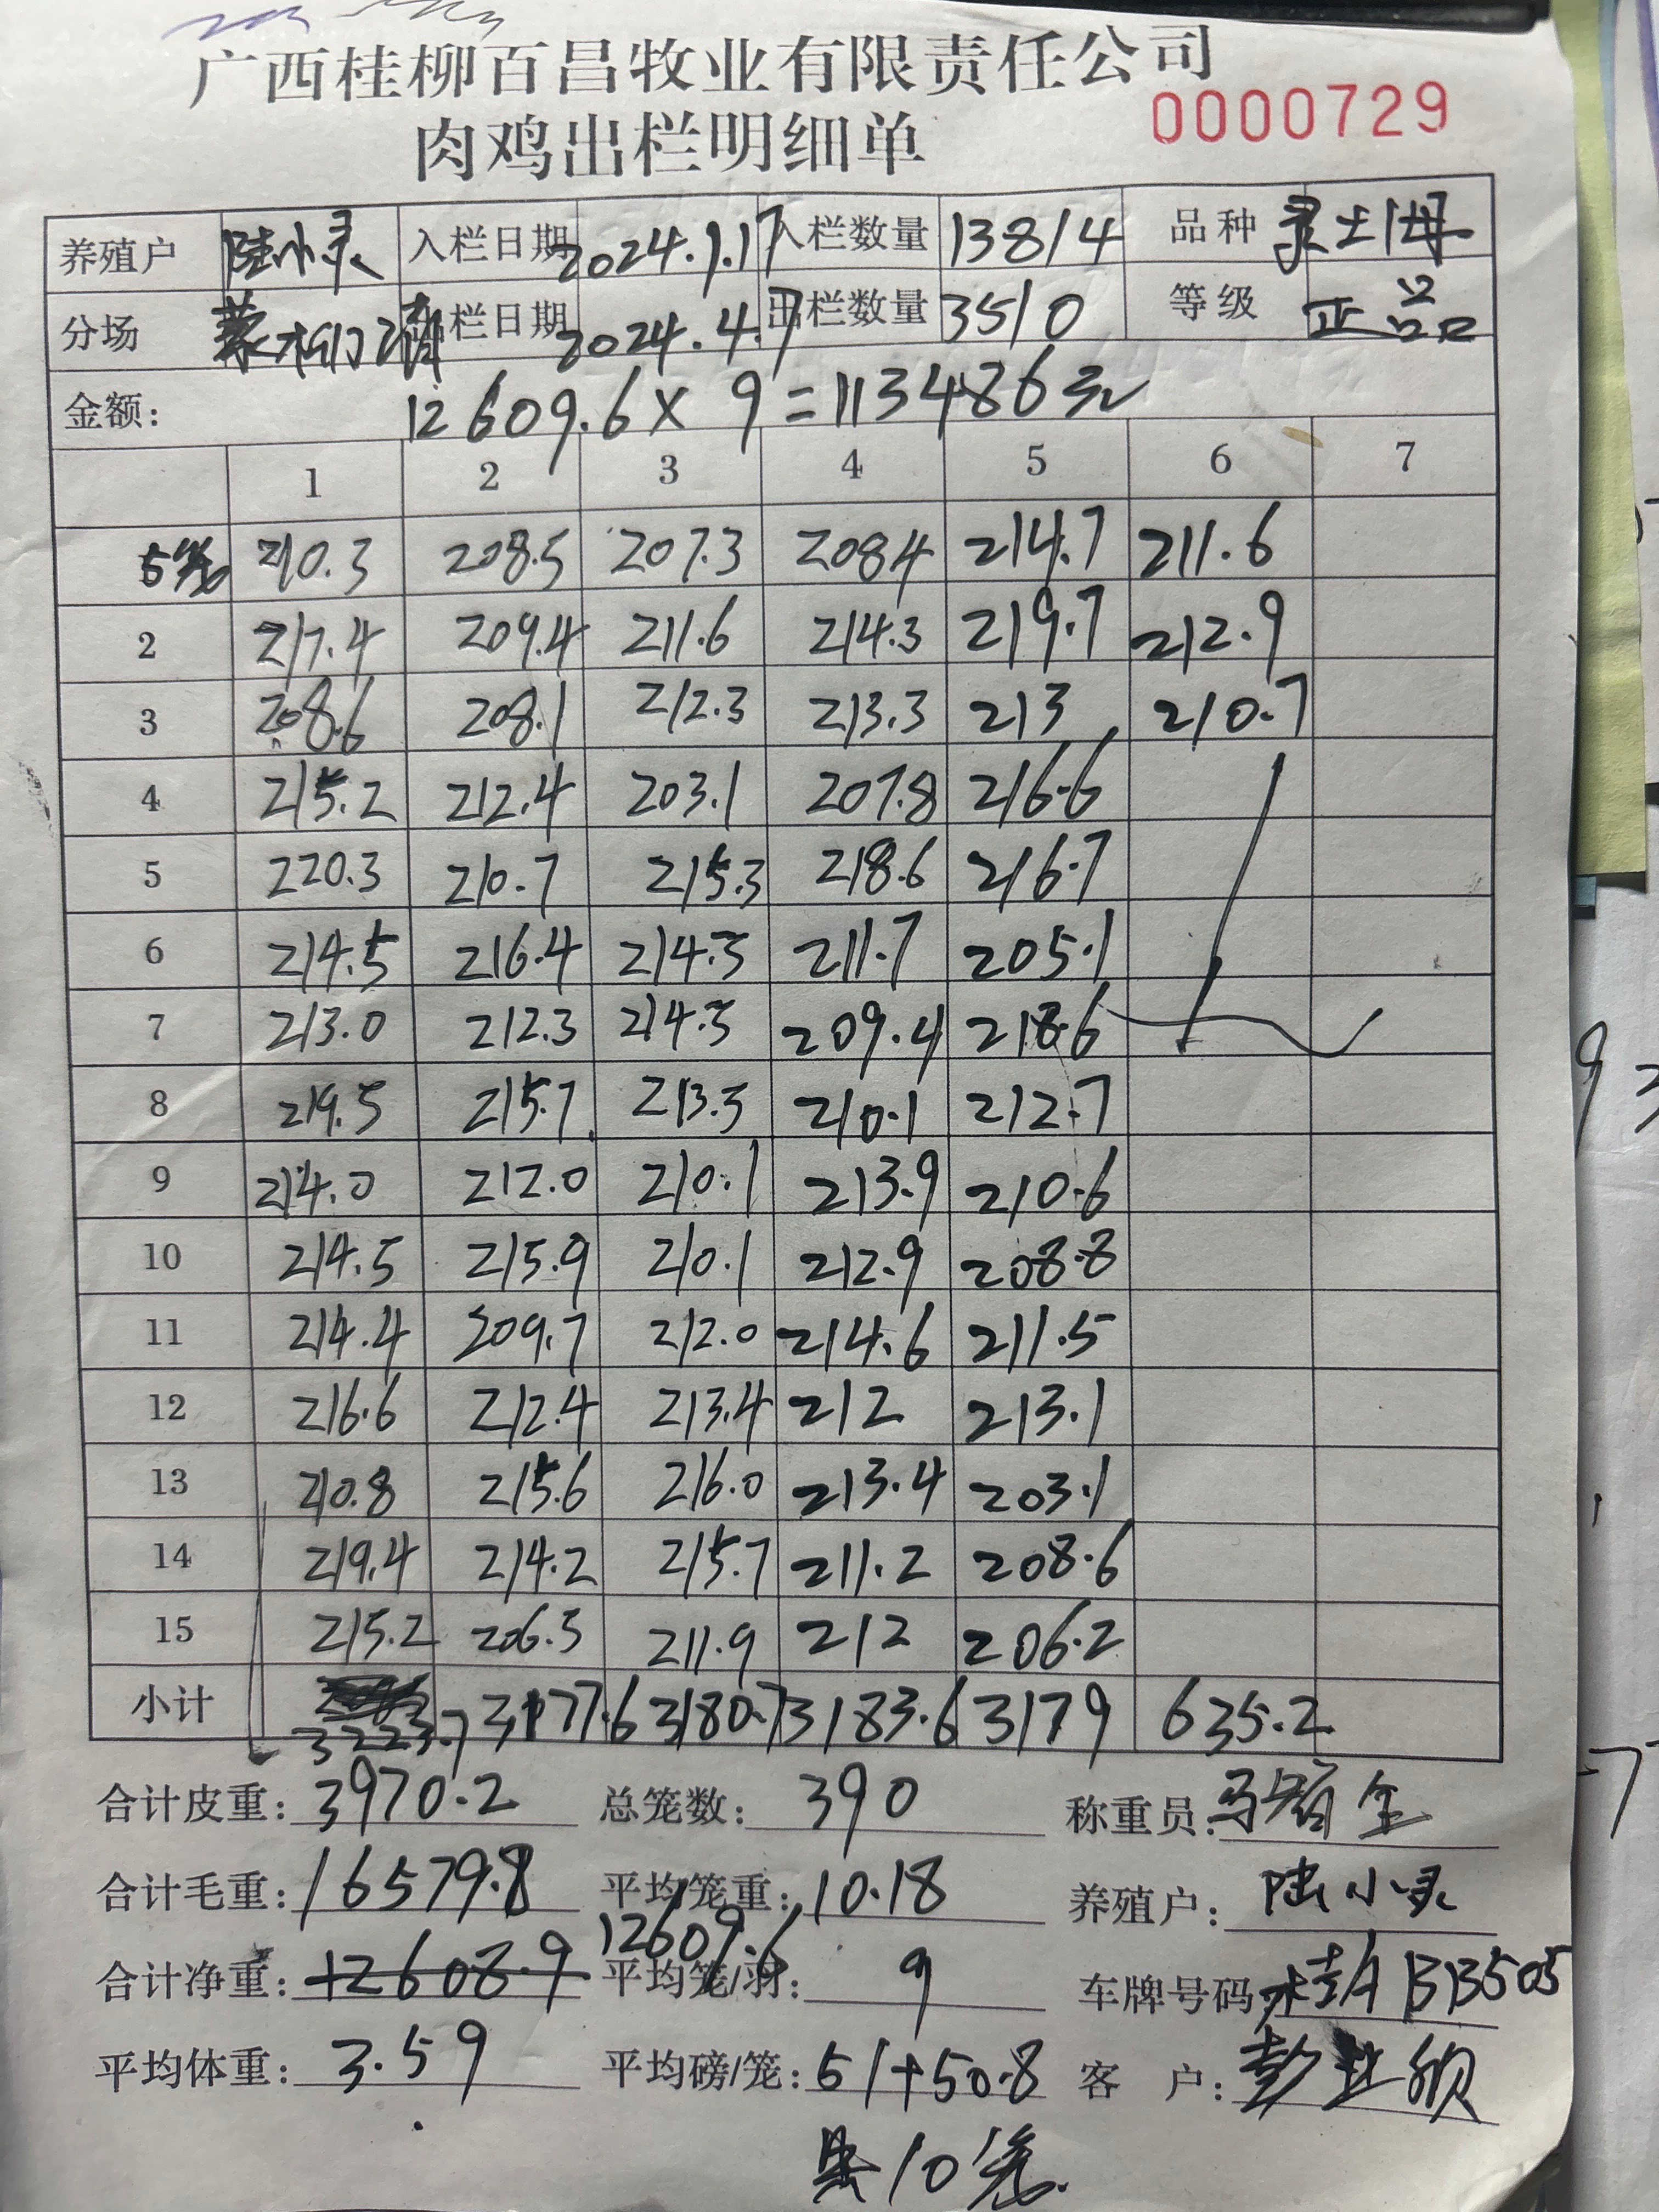 广西桂柳百昌牧业有限责任公司
肉鸡出栏明细单 0000729
养殖户 陆小灵 入栏日期 2024.1.17 入栏数量 13814 品种 灵土1母
分场 出栏日期 2024.4.7 出栏数量 3510 等级 正品
金额: 12609.6×9=113486元
1 2 3 4 5 6 7
5笼 210.3 208.5 207.3 208.4 214.7 211.6
2 217.4 209.4 211.6 214.3 219.7 212.9
3 208.6 208.1 212.3 213.3 213 210.7
4 215.2 212.4 203.1 207.8 216.6
5 220.3 210.7 215.3 218.6 216.7
6 214.5 216.4 214.3 211.7 205.1
7 213.0 212.3 214.3 209.4 218.6
8 219.5 215.7 213.3 210.1 212.7
9 214.0 212.0 210.1 213.9 210.6
10 214.5 215.9 210.1 212.9 208.8
11 214.4 209.7 212.0 214.6 211.5
12 216.6 212.4 213.4 212 213.1
13 210.8 215.6 216.0 213.4 203.1
14 219.4 214.2 215.7 211.2 208.6
15 215.2 206.3 211.9 212 206.2
小计 3223.7 3177.6 3180.7 3183.6 3179 635.2
合计皮重: 3970.2 总笼数: 390 称重员:
合计毛重: 16579.8 平均笼重: 10.18 养殖户: 陆小灵
12609.6
合计净重: 12608.9 平均笼/羽: 9 车牌号码 桂A BB505
平均体重: 3.59 平均磅/笼: 51+50.8 客 户:
共10笼